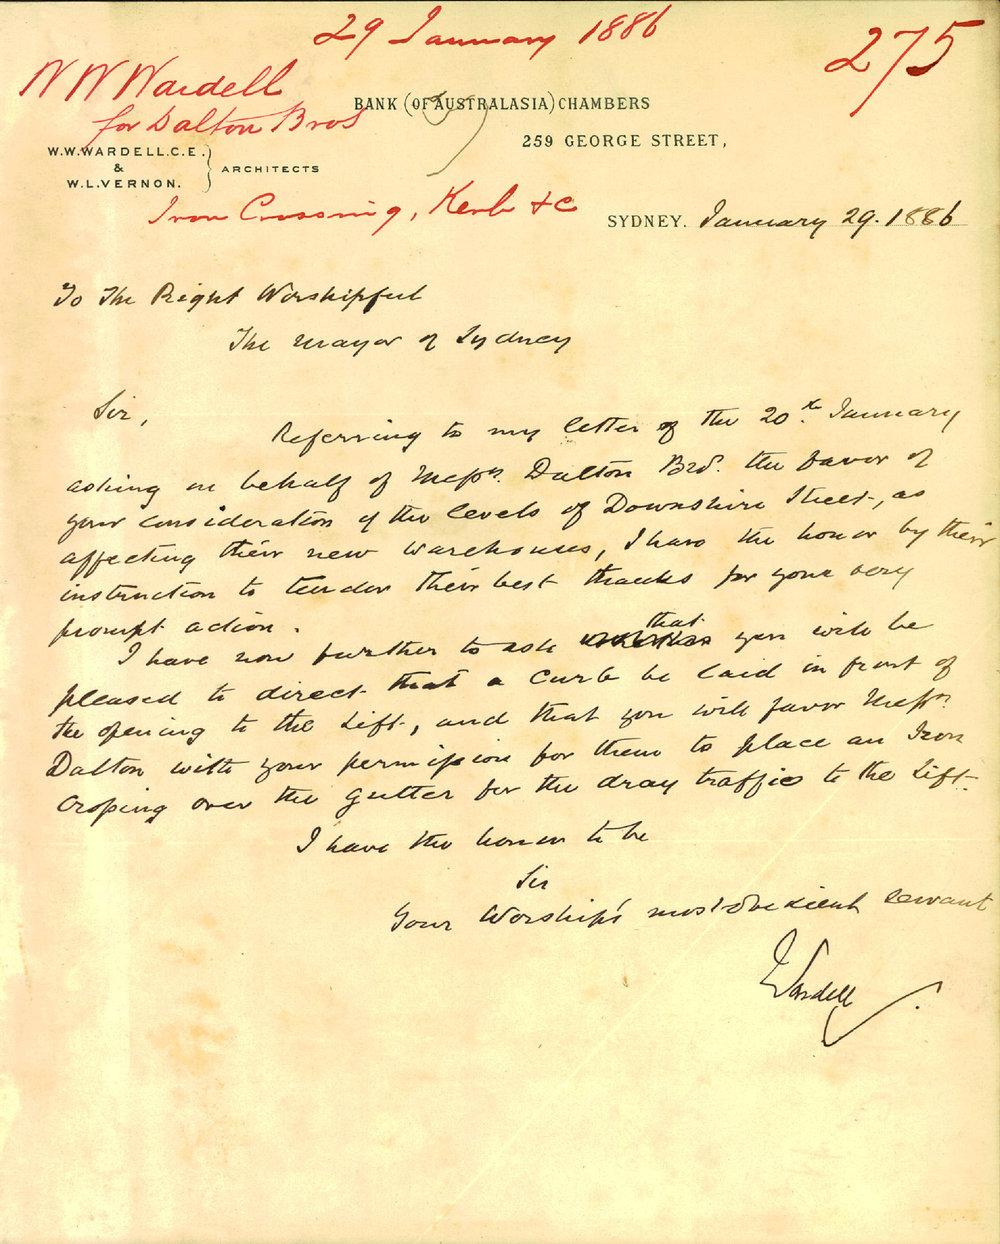 29 January 1886
275
W W Wardell
for Dalton Bros
BANK (OF AUSTRALASIA) CHAMBERS
259 GEORGE STREET,
W.W.WARDELL.C.E.
&
W.L.VERNON.
ARCHITECTS
Iron Crossing, Kerb &c
SYDNEY. January 29. 1886
To The Right Worshipful
The Mayor of Sydney
Sir,
Referring to my letter of the 20th January
asking on behalf of Messrs. Dalton Bros. the favor of
your consideration of the levels of Downshire Street, as
affecting their new warehouses, I have the honor by their
instruction to tender their best thanks for your very
prompt action.
I have now further to ask that you will be
pleased to direct that a Curb be laid in front of
the opening to the Lift, and that you will favor Messrs
Dalton with your permission for them to place an Iron
Crossing over the gutter for the dray traffic to the Lift.
I have the honor to be
Sir
Your Worship's most obedient servant
Wardell